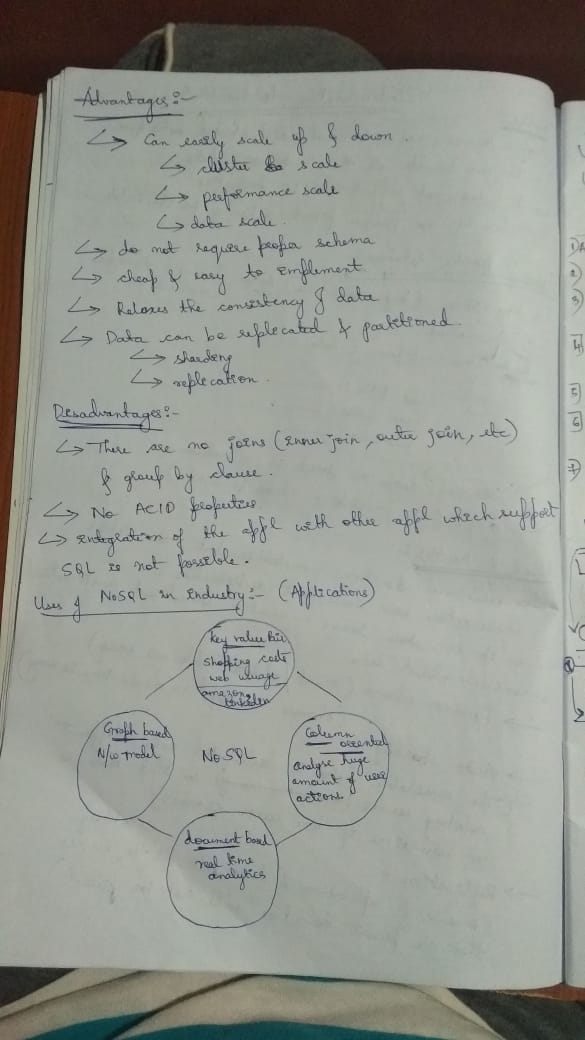 Advantages:-
↳ Can easily scale up & down.
↳ cluster scale
↳ performance scale
↳ data scale.
↳ do not require proper schema
↳ cheap & easy to implement
↳ Relaxes the consistency of data
↳ Data can be replicated & partitioned.
↳ sharding
↳ replication.
Disadvantages:-
↳ There are no joins (inner join, outer join, etc)
& group by clause.
↳ No ACID properties
↳ integration of the appl with other appl which support
SQL is not possible.
Uses of NoSQL in industry:- (Applications)
key value
shopping carts
web usage
amazon,
linkedin
Graph based
N/w model
NoSQL
Column
oriented
analyse huge
amount of user
actions
document based
real time
analytics
1)
2)
3)
4)
5)
6)
7)